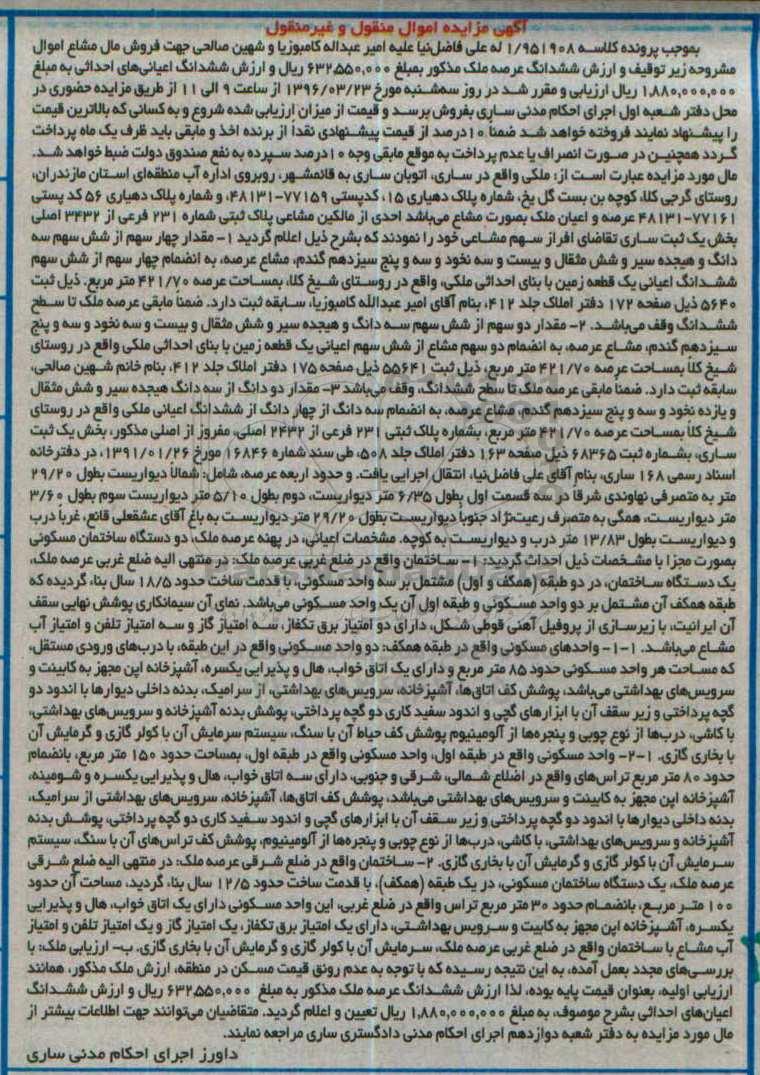 آگهی مزایده اموال منقول و غیرمنقول
بموجب پرونده کلاسه ۱/۹۵۱۹۰۸ له علی فاضل‌نیا علیه امیر عبداله کامبوزیا و شهین صالحی جهت فروش مال مشاع اموال
مشروحه زیر توقیف و ارزش ششدانگ عرصه ملک مذکور بمبلغ ۶۳۲,۵۵۰,۰۰۰ ریال و ارزش ششدانگ اعیانی‌های احداثی به مبلغ
۱,۸۸۰,۰۰۰,۰۰۰ ریال ارزیابی و مقرر شد در روز سه‌شنبه مورخ ۱۳۹۶/۰۳/۲۳ از ساعت ۹ الی ۱۱ از طریق مزایده حضوری در
محل دفتر شعبه اول اجرای احکام مدنی ساری بفروش برسد و قیمت از میزان ارزیابی شده شروع و به کسانی که بالاترین قیمت
را پیشنهاد نمایند فروخته خواهد شد ضمنا ۱۰درصد از قیمت پیشنهادی نقدا از برنده اخذ و مابقی باید ظرف یک ماه پرداخت
گردد همچنین در صورت انصراف یا عدم پرداخت به موقع مابقی وجه ۱۰درصد سپرده به نفع صندوق دولت ضبط خواهد شد.
مال مورد مزایده عبارت است از: ملکی واقع در ساری، اتوبان ساری به قائمشهر، روبروی اداره آب منطقه‌ای استان مازندران،
روستای گرجی کلا، کوچه بن بست گل یخ، شماره پلاک دهیاری ۱۵، کدپستی ۷۷۱۵۹-۴۸۱۳۱، و شماره پلاک دهیاری ۵۶ کد پستی
۷۷۱۶۱-۴۸۱۳۱ عرصه و اعیان ملک بصورت مشاع می‌باشد احدی از مالکین مشاعی پلاک ثبتی شماره ۲۳۱ فرعی از ۳۴۳۲ اصلی
بخش یک ثبت ساری تقاضای افراز سهم مشاعی خود را نمودند که بشرح ذیل اعلام گردید ۱- مقدار چهار سهم از شش سهم سه
دانگ و هیجده سیر و شش مثقال و بیست و سه نخود و سه و پنج سیزدهم گندم، مشاع عرصه، به انضمام چهار سهم از شش سهم
ششدانگ اعیانی یک قطعه زمین با بنای احداثی ملکی، واقع در روستای شیخ کلا، بمساحت عرصه ۴۲۱/۷۰ متر مربع. ذیل ثبت
۵۶۴۰ ذیل صفحه ۱۷۲ دفتر املاک جلد ۴۱۲، بنام آقای امیر عبدالله کامبوزیا، سابقه ثبت دارد. ضمناً مابقی عرصه ملک تا سطح
ششدانگ وقف می‌باشد. ۲- مقدار دو سهم از شش سهم سه دانگ و هیجده سیر و شش مثقال و بیست و سه نخود و سه و پنج
سیزدهم گندم، مشاع عرصه، به انضمام دو سهم مشاع از شش سهم اعیانی یک قطعه زمین با بنای احداثی ملکی واقع در روستای
شیخ کلا بمساحت عرصه ۴۲۱/۷۰ متر مربع، ذیل ثبت ۵۵۶۴۱ ذیل صفحه ۱۷۵ دفتر املاک جلد ۴۱۲، بنام خانم شهین صالحی،
سابقه ثبت دارد. ضمنا مابقی عرصه ملک تا سطح ششدانگ، وقف می‌باشد ۳- مقدار دو دانگ از سه دانگ هیجده سیر و شش مثقال
و یازده نخود و سه و پنج سیزدهم گندم، مشاع عرصه، به انضمام سه دانگ از چهار دانگ از ششدانگ اعیانی ملکی واقع در روستای
شیخ کلا بمساحت عرصه ۴۲۱/۷۰ متر مربع، بشماره پلاک ثبتی ۲۳۱ فرعی از ۲۴۳۲ اصلی، مفروز از اصلی مذکور، بخش یک ثبت
ساری، بشماره ثبت ۶۸۳۶۵ ذیل صفحه ۱۶۳ دفتر املاک جلد ۵۰۸، طی سند شماره ۱۶۸۴۶ مورخ ۱۳۹۱/۰۱/۲۶، در دفترخانه
اسناد رسمی ۱۶۸ ساری، بنام آقای علی فاضل‌نیا، انتقال اجرایی یافت. و حدود اربعه عرصه، شامل: شمالاً دیواریست بطول ۲۹/۲۰
متر به متصرفی نهاوندی شرقا در سه قسمت اول بطول ۶/۳۵ متر دیواریست، دوم بطول ۵/۱۰ متر دیواریست سوم بطول ۳/۶۰
متر دیواریست، همگی به متصرف رعیت‌نژاد جنوباً دیواریست بطول ۲۹/۲۰ متر دیواریست به باغ آقای عشقعلی قانع، غرباً درب
و دیواریست بطول ۱۳/۸۳ متر درب و دیواریست به کوچه. مشخصات اعیانی، در پهنه عرصه ملک، دو دستگاه ساختمان مسکونی
بصورت مجزا با مشخصات ذیل احداث گردید: ۱- ساختمان واقع در ضلع غربی عرصه ملک: در منتهی الیه ضلع غربی عرصه ملک،
یک دستگاه ساختمان، در دو طبقه (همکف و اول) مشتمل بر سه واحد مسکونی، با قدمت ساخت حدود ۱۸/۵ سال بنا، گردیده که
طبقه همکف آن مشتمل بر دو واحد مسکونی و طبقه اول آن یک واحد مسکونی می‌باشد. نمای آن سیمانکاری پوشش نهایی سقف
آن ایرانیت، با زیرسازی از پروفیل آهنی قوطی شکل، دارای دو امتیاز برق تکفاز، سه امتیاز گاز و سه امتیاز تلفن و امتیاز آب
مشاع می‌باشد. ۱-۱- واحدهای مسکونی واقع در طبقه همکف: دو واحد مسکونی واقع در این طبقه، با درب‌های ورودی مستقل،
که مساحت هر واحد مسکونی حدود ۸۵ متر مربع و دارای یک اتاق خواب، هال و پذیرایی یکسره، آشپزخانه اپن مجهز به کابینت و
سرویس‌های بهداشتی می‌باشد، پوشش کف اتاق‌ها، آشپزخانه، سرویس‌های بهداشتی، از سرامیک، بدنه داخلی دیوارها با اندود دو
گچه پرداختی و زیر سقف آن با ابزارهای گچی و اندود سفید کاری دو گچه پرداختی، پوشش بدنه آشپزخانه و سرویس‌های بهداشتی،
با کاشی، درب‌ها از نوع چوبی و پنجره‌ها از آلومینیوم پوشش کف حیاط آن با سنگ، سیستم سرمایش آن با کولر گازی و گرمایش آن
با بخاری گازی. ۲-۱- واحد مسکونی واقع در طبقه اول، واحد مسکونی واقع در طبقه اول، بمساحت حدود ۱۵۰ متر مربع، بانضمام
حدود ۸۰ متر مربع تراس‌های واقع در اضلاع شمالی، شرقی و جنوبی، دارای سه اتاق خواب، هال و پذیرایی یکسره و شومینه،
آشپزخانه اپن مجهز به کابینت و سرویس‌های بهداشتی می‌باشد، پوشش کف اتاق‌ها، آشپزخانه، سرویس‌های بهداشتی از سرامیک،
بدنه داخلی دیوارها با اندود دو گچه پرداختی و زیر سقف آن با ابزارهای گچی و اندود سفید کاری دو گچه پرداختی، پوشش بدنه
آشپزخانه و سرویس‌های بهداشتی، با کاشی، درب‌ها از نوع چوبی و پنجره‌ها از آلومینیوم، پوشش کف تراس‌های آن با سنگ، سیستم
سرمایش آن با کولر گازی و گرمایش آن با بخاری گازی. ۲- ساختمان واقع در ضلع شرقی عرصه ملک: در منتهی الیه ضلع شرقی
عرصه ملک، یک دستگاه ساختمان مسکونی، در یک طبقه (همکف)، با قدمت ساخت حدود ۱۲/۵ سال بنا، گردید، مساحت آن حدود
۱۰۰ متر مربع، بانضمام حدود ۳۰ متر مربع تراس واقع در ضلع غربی، این واحد مسکونی دارای یک اتاق خواب، هال و پذیرایی
یکسره، آشپزخانه اپن مجهز به کابینت و سرویس بهداشتی، دارای یک امتیاز برق تکفاز، یک امتیاز گاز و یک امتیاز تلفن و امتیاز
آب مشاع با ساختمان واقع در ضلع غربی عرصه ملک، سرمایش آن با کولر گازی و گرمایش آن با بخاری گازی. ب- ارزیابی ملک: با
بررسی‌های مجدد بعمل آمده، به این نتیجه رسیده که با توجه به عدم رونق قیمت مسکن در منطقه، ارزش ملک مذکور، همانند
ارزیابی اولیه، بعنوان قیمت پایه بوده، لذا ارزش ششدانگ عرصه ملک مذکور به مبلغ ۶۳۲,۵۵۰,۰۰۰ ریال و ارزش ششدانگ
اعیان‌های احداثی بشرح موصوف، به مبلغ ۱,۸۸۰,۰۰۰,۰۰۰ ریال تعیین و اعلام گردید. متقاضیان می‌توانند جهت اطلاعات بیشتر از
مال مورد مزایده به دفتر شعبه دوازدهم اجرای احکام مدنی دادگستری ساری مراجعه نمایند.
داورز اجرای احکام مدنی ساری